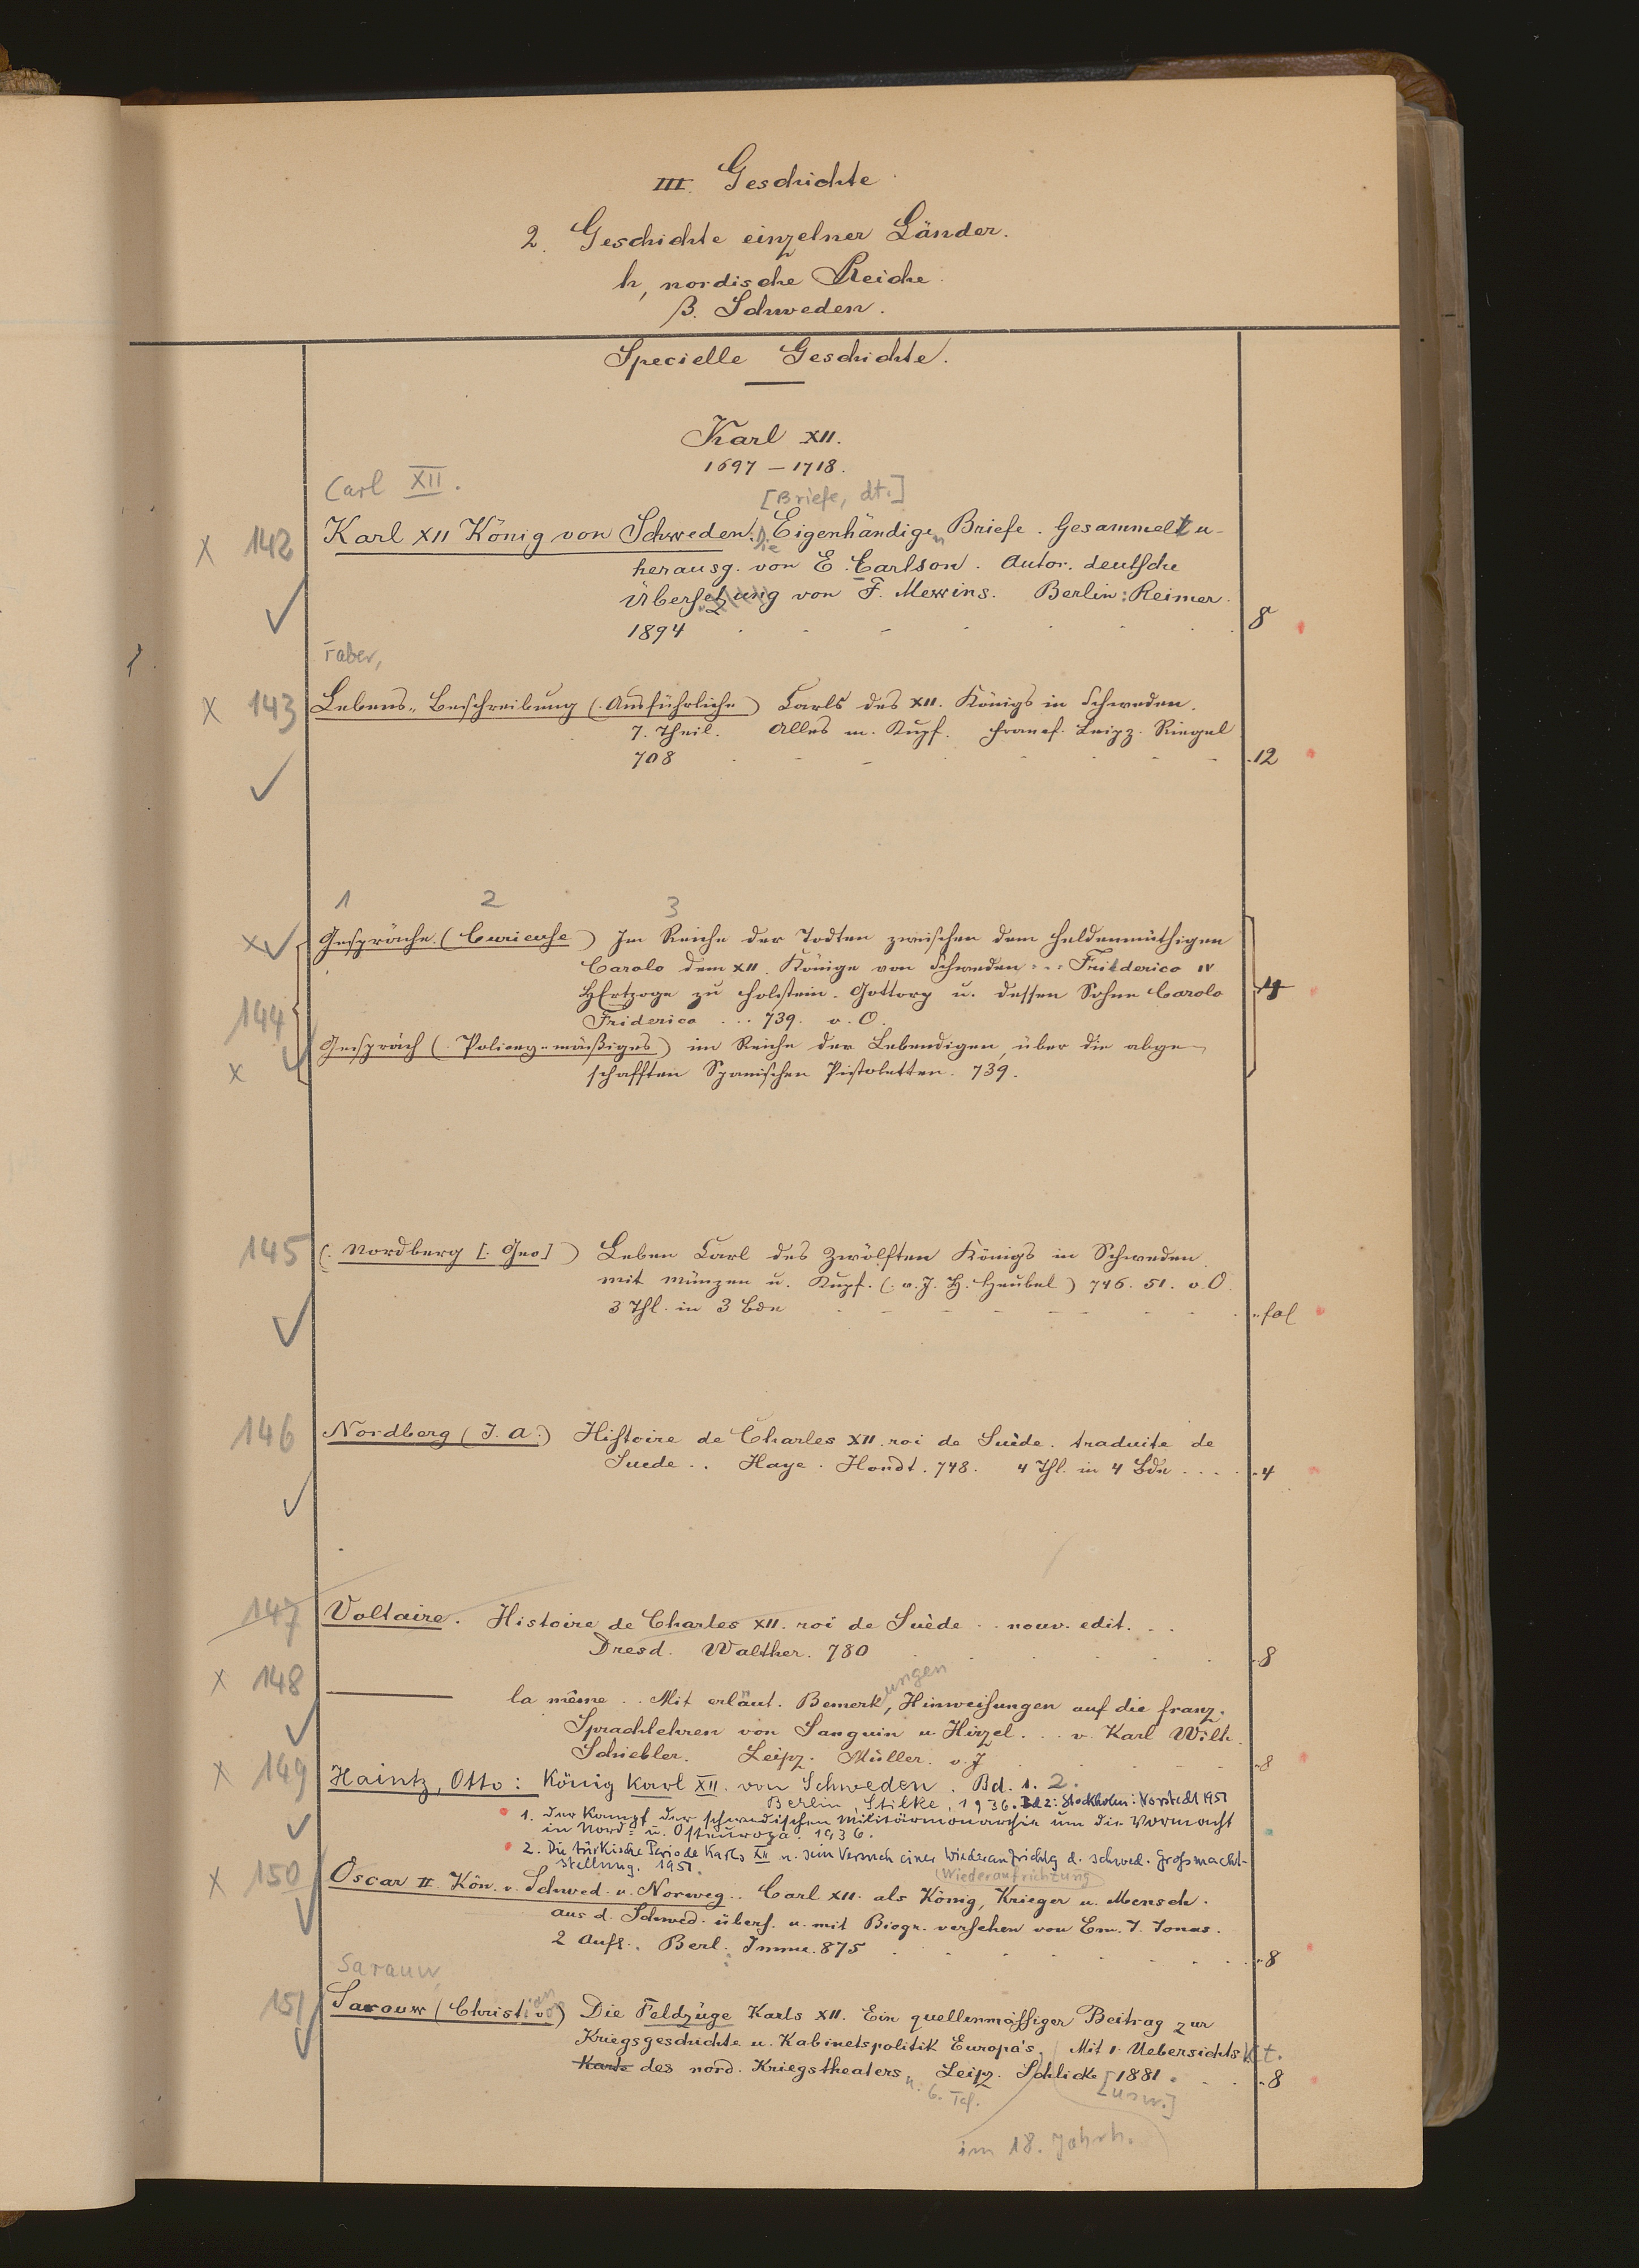 III. Geschichte
2. Geschichte einzelner Länder.
h, nordische Reiche
β. Schweden.
Specielle Geschichte.
Karl XII.
1697 – 1718.
Carl XII.
[Briefe, dt.]
X 142 Karl XII König von Schweden: Die Eigenhändigen Briefe. Gesammelt u.
herausg. von E. Carlson. Autor. deutsche
Übersetzung von F. Mewius. Berlin: Reimer.
1894 8
Faber,
X 143 Lebens-Beschreibung (Ausführliche) Carls des XII. Königs in Schweden.
7. Theil. Alles m. Kupf. Francf. Leipz. Riegel
708 12
1 2 3
X Gespräche (Curieuse) Im Reiche der Todten zwischen dem heldenmüthigen
Carolo dem XII. Könige von Schweden ... Friderico IV
HErtzoge zu Holstein-Gottorp u. dessen Sohne Carolo 4
144 Friderico ... 739. o. O.
X Gespräch (Policey-mäßiges) im Reiche der Lebendigen, über die abge-
schafften Spanischen Pistoletten. 739.
145 (Nordberg [Geo]) Leben Carl des Zwölften Königs in Schweden
mit Münzen u. Kupf. (v. J. H. Heubel) 746. 51. o. O.
3 Thl. in 3 Bdn fol
146 Nordberg (J. A.) Histoire de Charles XII. roi de Suède. traduite de
Suede .. Haye. Hondt. 748. 4 Thl. in 4 Bdn 4
147 Voltaire. Histoire de Charles XII. roi de Suède .. nouv. edit.
Dresd. Walther. 780 8
X 148 la même .. Mit erläut. Bemerkungen, Hinweisungen auf die franz.
Sprachlehren von Sanguin u. Hirzel ... v. Karl Wilh.
Schiebler. Leipz. Müller. o. J. 8
X 149 Haintz, Otto: König Karl XII. von Schweden. Bd. 1. 2.
Berlin, Stilke, 1936. Bd 2: Stockholm: Norstedt 1951
1. Der Kampf der schwedischen Militärmonarchie um die Vormacht
in Nord- u. Osteuropa. 1936.
2. Die türkische Periode Karls XII u. sein Versuch einer Wiederaufrichtg d. schwed. Großmacht-
stellung. 1951.
(Wiederaufrichtung)
X 150 Oscar II. Kön. v. Schwed. u. Norweg .. Carl XII. als König, Krieger u. Mensch.
aus d. Schwed. übers. u. mit Biogr. versehen von Em. J. Jonas.
2 Aufl. Berl. Imme. 875 8
Sarauw,
151 Sarauw (Christian) Die Feldzüge Karls XII. Ein quellenmässiger Beitrag zur
Kriegsgeschichte u. Kabinetspolitik Europa's. Mit 1. Uebersichts Kt.
Karte des nord. Kriegstheaters Leipz. Schlicke 1881. 8
u. 6. Taf. [usw.]
im 18. Jahrh.